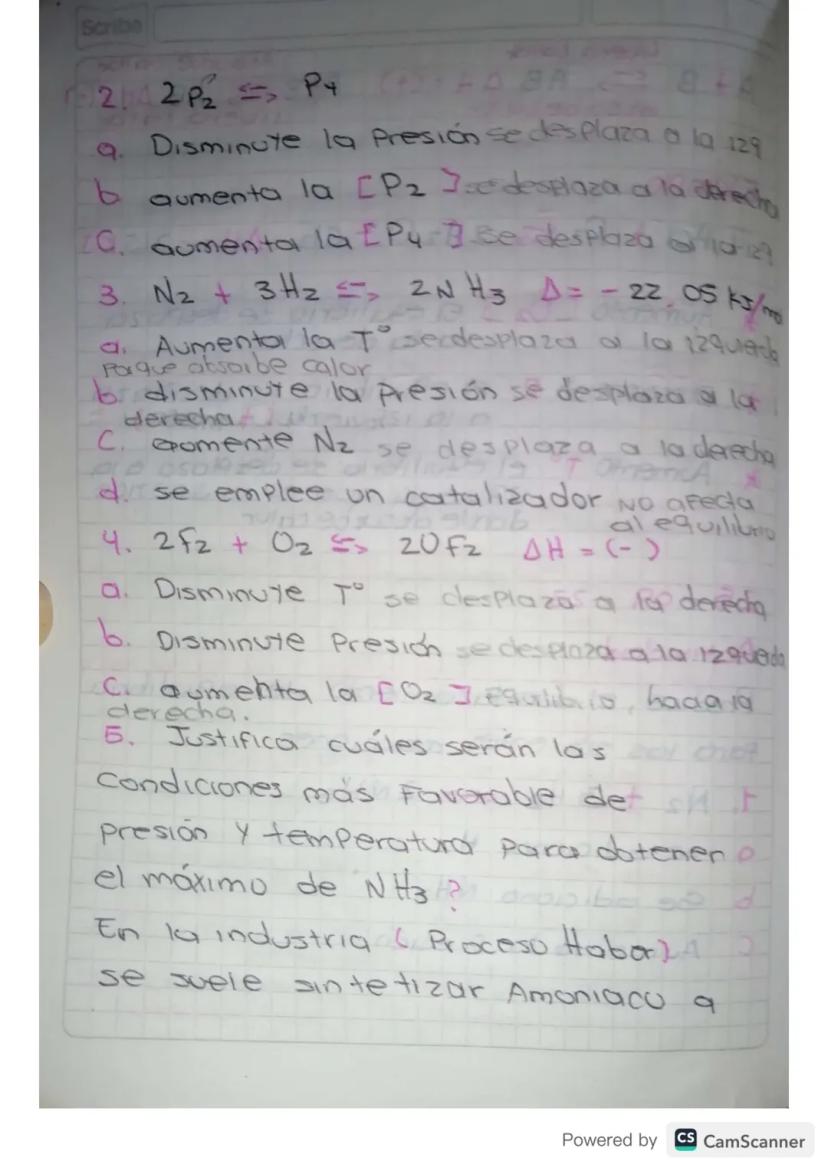 Scribe
2. 2P2 ⇆ P4
a. Disminuye la Presión se desplaza a la izq
b aumenta la [P2] se desplaza a la derecha
C. aumenta la [P4] se desplaza a la izq
3. N2 + 3H2 ⇆ 2NH3 Δ= -22,05 KJ/mo
a. Aumenta la T° se desplaza a la izquieda
Porque absorbe calor
b. disminuye la Presión se desplaza a la
derecha
C. aomente N2 se desplaza a la derecha
d. se emplee un catalizador NO afecta
al equilibrio
4. 2F2 + O2 ⇆ 2OF2 ΔH = (-)
a. Disminuye T° se desplaza a la derecha
b. Disminuye Presión se desplaza a la izquieda
C. aumenta la [O2] equilibrio, hacia la
derecha.
5. Justifica cuáles serán las
condiciones más Favorable de
presión y temperatura para obtener
el máximo de NH3?
En la industria (Proceso Habor)
se suele sintetizar Amoniaco a
Powered by CS CamScanner